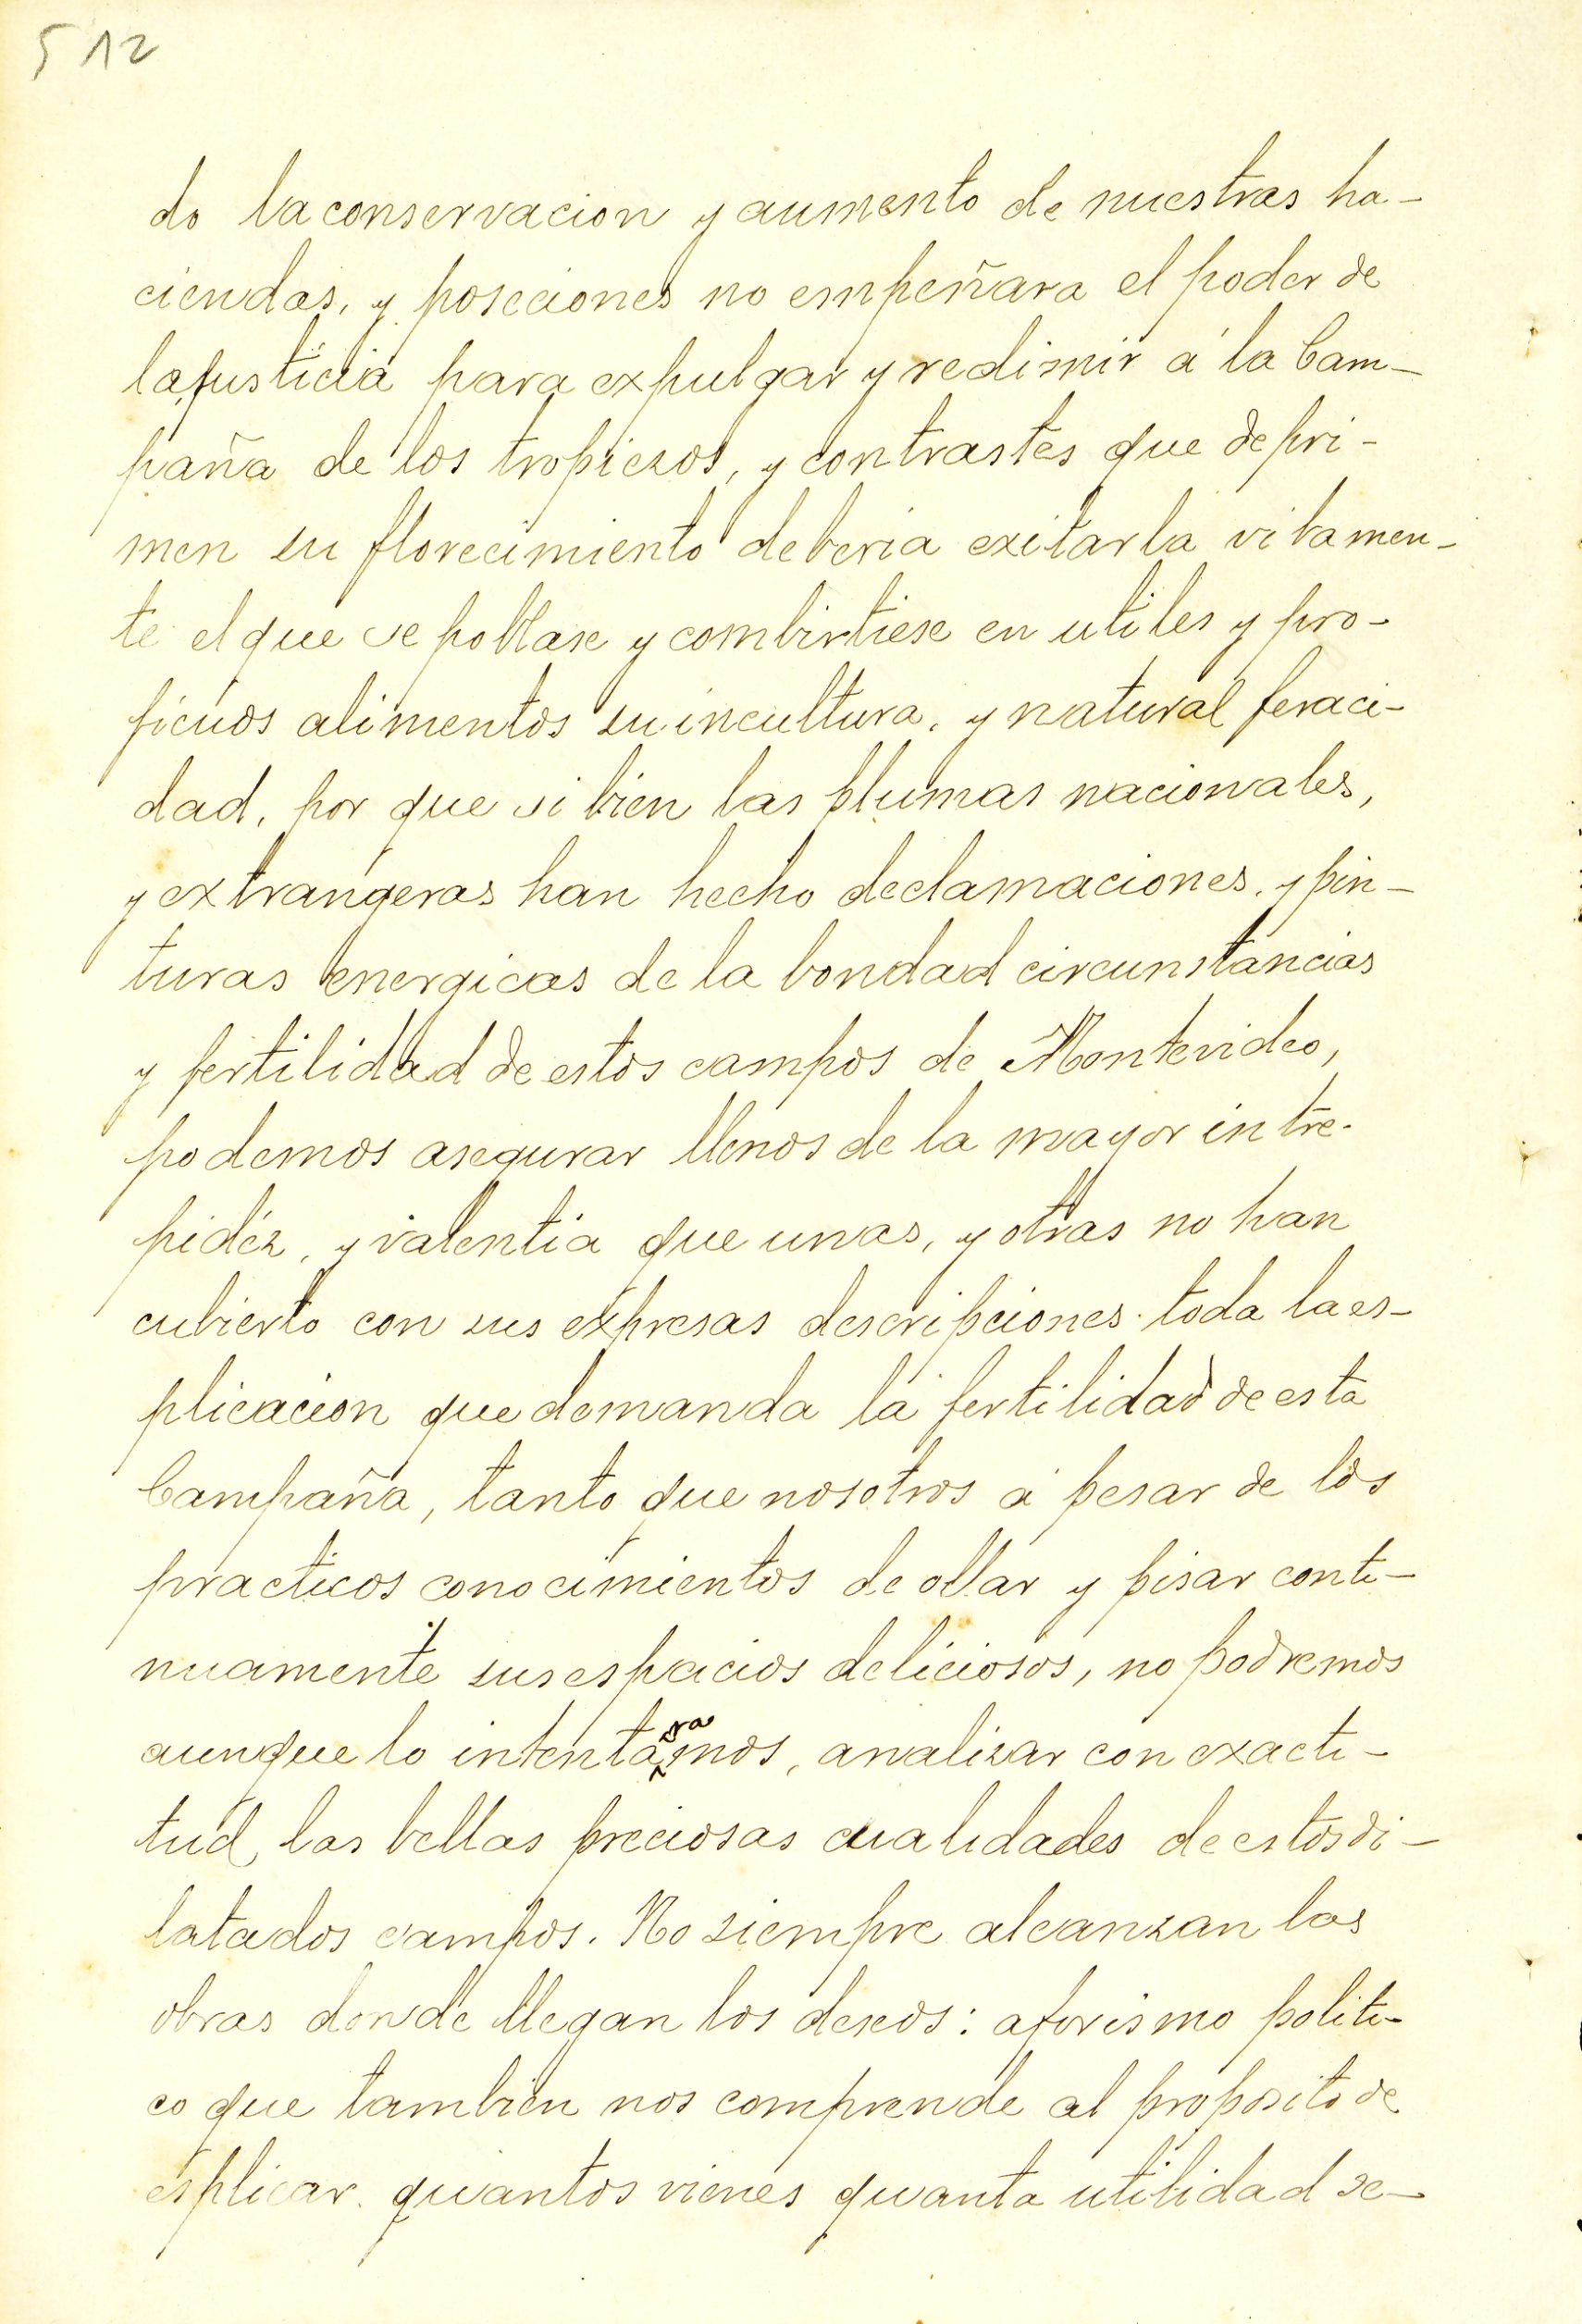 512
do la conservacion y aumento de nuestras ha-
ciendas, y poseciones no empeñara el poder de
la justicia para expulgar y redimir á la Cam-
paña de los tropiezos, y contrastes que depri-
men su florecimiento deberia exitarla vibamen-
te el que se poblase y combirtiese en utiles y pro-
ficuos alimentos su incultura, y natural feraci-
dad, por que si bien las plumas nacionales,
y extrangeras han hecho declamaciones, y pin-
turas energicas de la bondad circunstancias
y fertilidad de estos campos de Montevideo,
podemos asegurar llenos de la mayor intre-
pidéz, y valentia que unas, y otras no han
cubierto con sus expresas descripciones toda la es-
plicacion que demanda la fertilidad de esta
Campaña, tanto que nosotros á pesar de los
practicos conocimientos de ollar y pisar conti-
nuamente sus espacios deliciosos, no podremos
aunque lo intentaramos, analizar con exacti-
tud, las bellas preciosas cualidades de estos di-
latados campos. No siempre alcanzan las
obras donde llegan los deseos: aforismo politi-
co que tambien nos comprende al proposito de
esplicar quantos vienes quanta utilidad se-